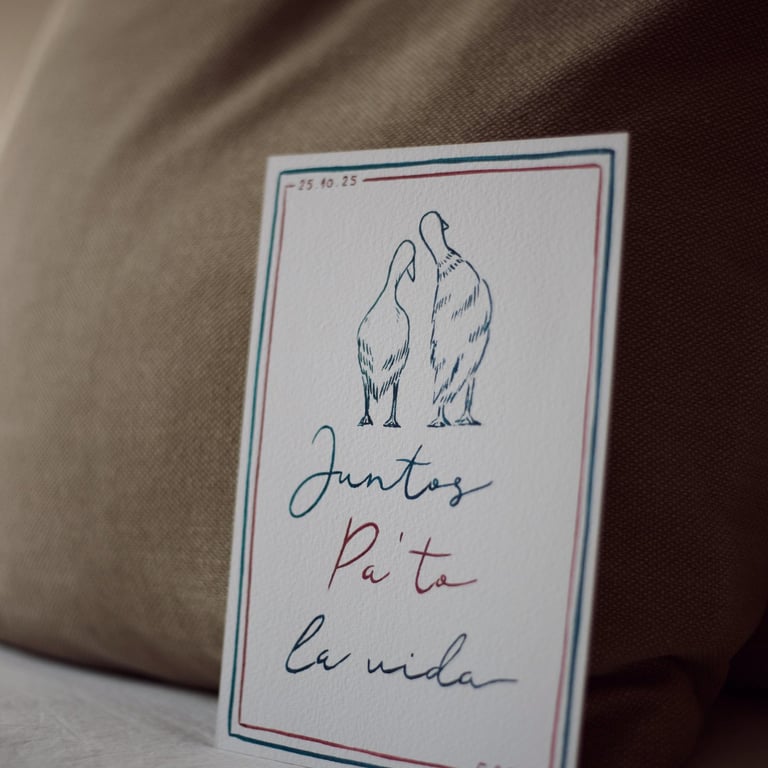 25.10.25
Juntos
Pa'to
la vida